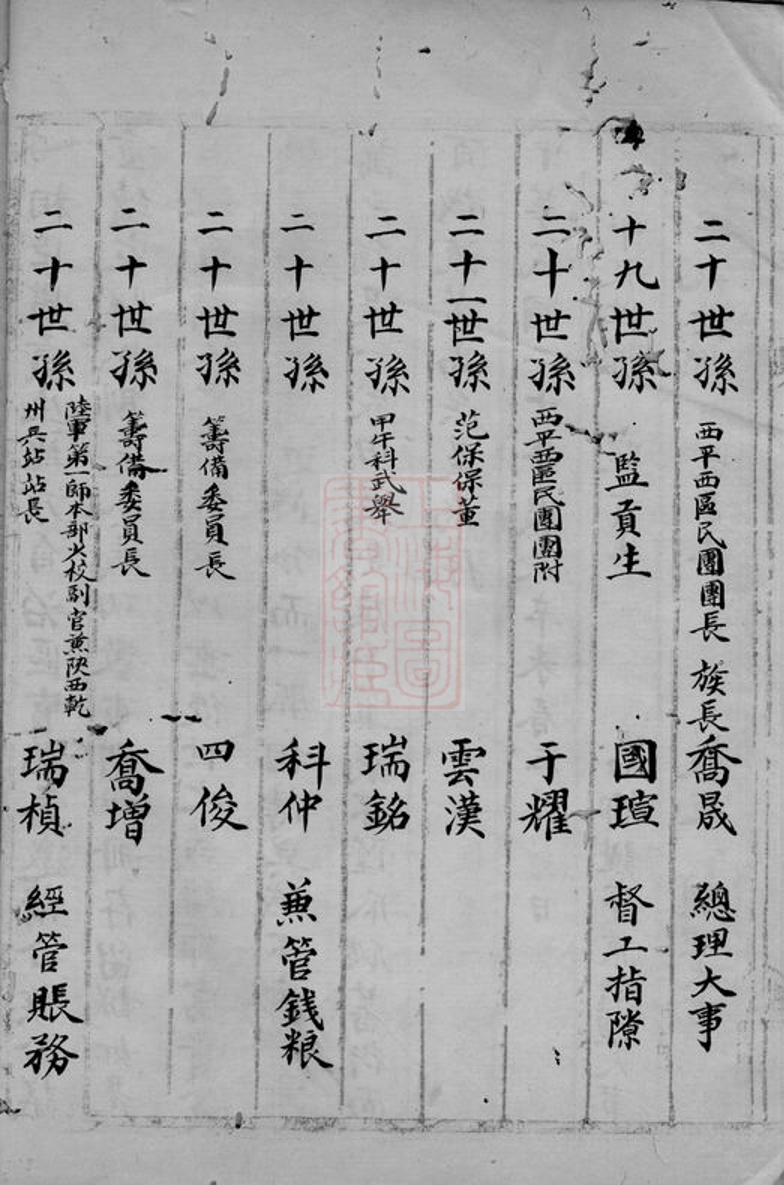 二十世孫 西平西區民團團長 族長 喬晟 總理大事
十九世孫 監貢生 國瑄 督工指隙
二十世孫 西平西區民團團附 于耀
二十一世孫 范保保董 雲漢
二十世孫 甲午科武舉 瑞銘
二十世孫 科仲 兼管錢粮
二十世孫 籌備委員長 四俊
二十世孫 籌備委員長 喬增
二十世孫 陸軍第一師本部少校副官兼陝西乾
州兵站站長 瑞楨 經管賬務